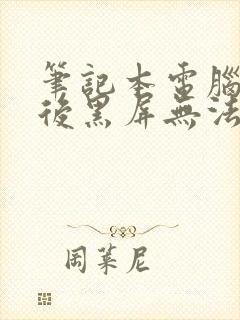 筆記本電腦
後黑屏無法
周葉尼